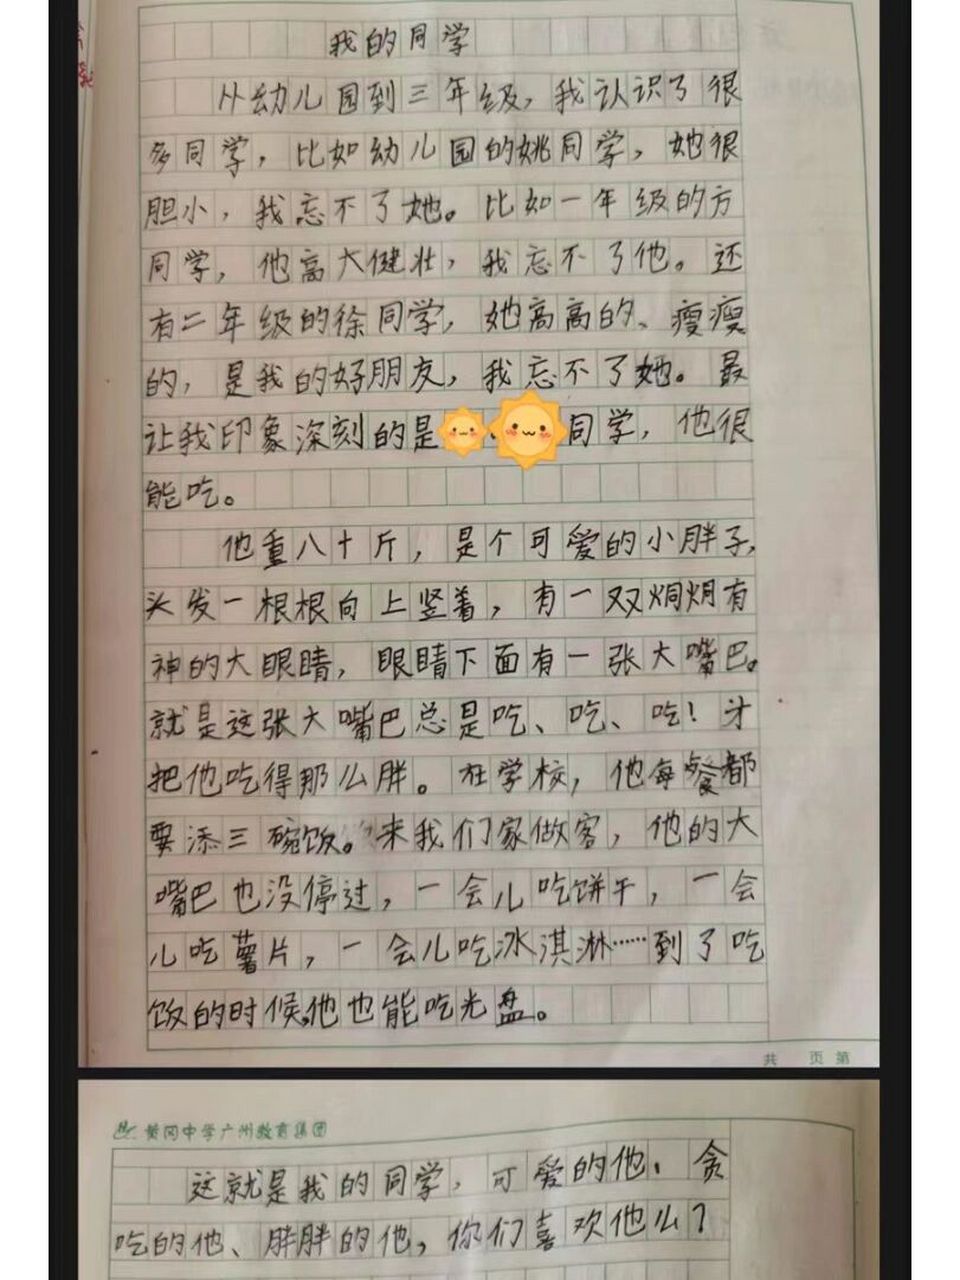 我的同学
从幼儿园到三年级，我认识了很
多同学，比如幼儿园的姚同学，她很
胆小，我忘不了她。比如一年级的方
同学，他高大健壮，我忘不了他。还
有二年级的徐同学，她高高的、瘦瘦
的，是我的好朋友，我忘不了她。最
让我印象深刻的是同学，他很
能吃。
他重八十斤，是个可爱的小胖子，
头发一根根向上竖着，有一双炯炯有
神的大眼睛，眼睛下面有一张大嘴巴。
就是这张大嘴巴总是吃、吃、吃！才
把他吃得那么胖。在学校，他每餐都
要添三碗饭。来我们家做客，他的大
嘴巴也没停过，一会儿吃饼干，一会
儿吃薯片，一会儿吃冰淇淋……到了吃
饭的时候，他也能吃光盘。
共 页 第
黄冈中学广州教育集团
这就是我的同学，可爱的他、贪
吃的他、胖胖的他，你们喜欢他么？